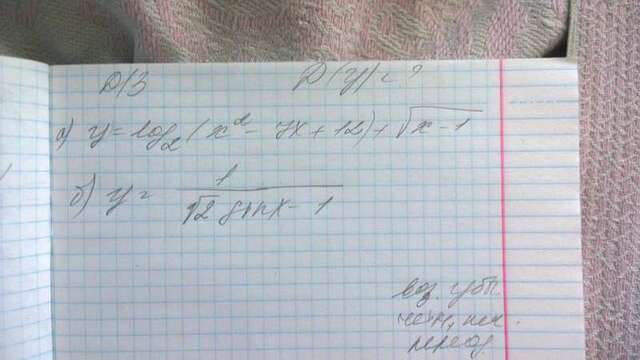 Д/З D(y)=?
а) y=log₂(x²-7x+12)+√x-1
б) y= 1
√2 sinx-1
воз. убл.
чётн, неч.
период